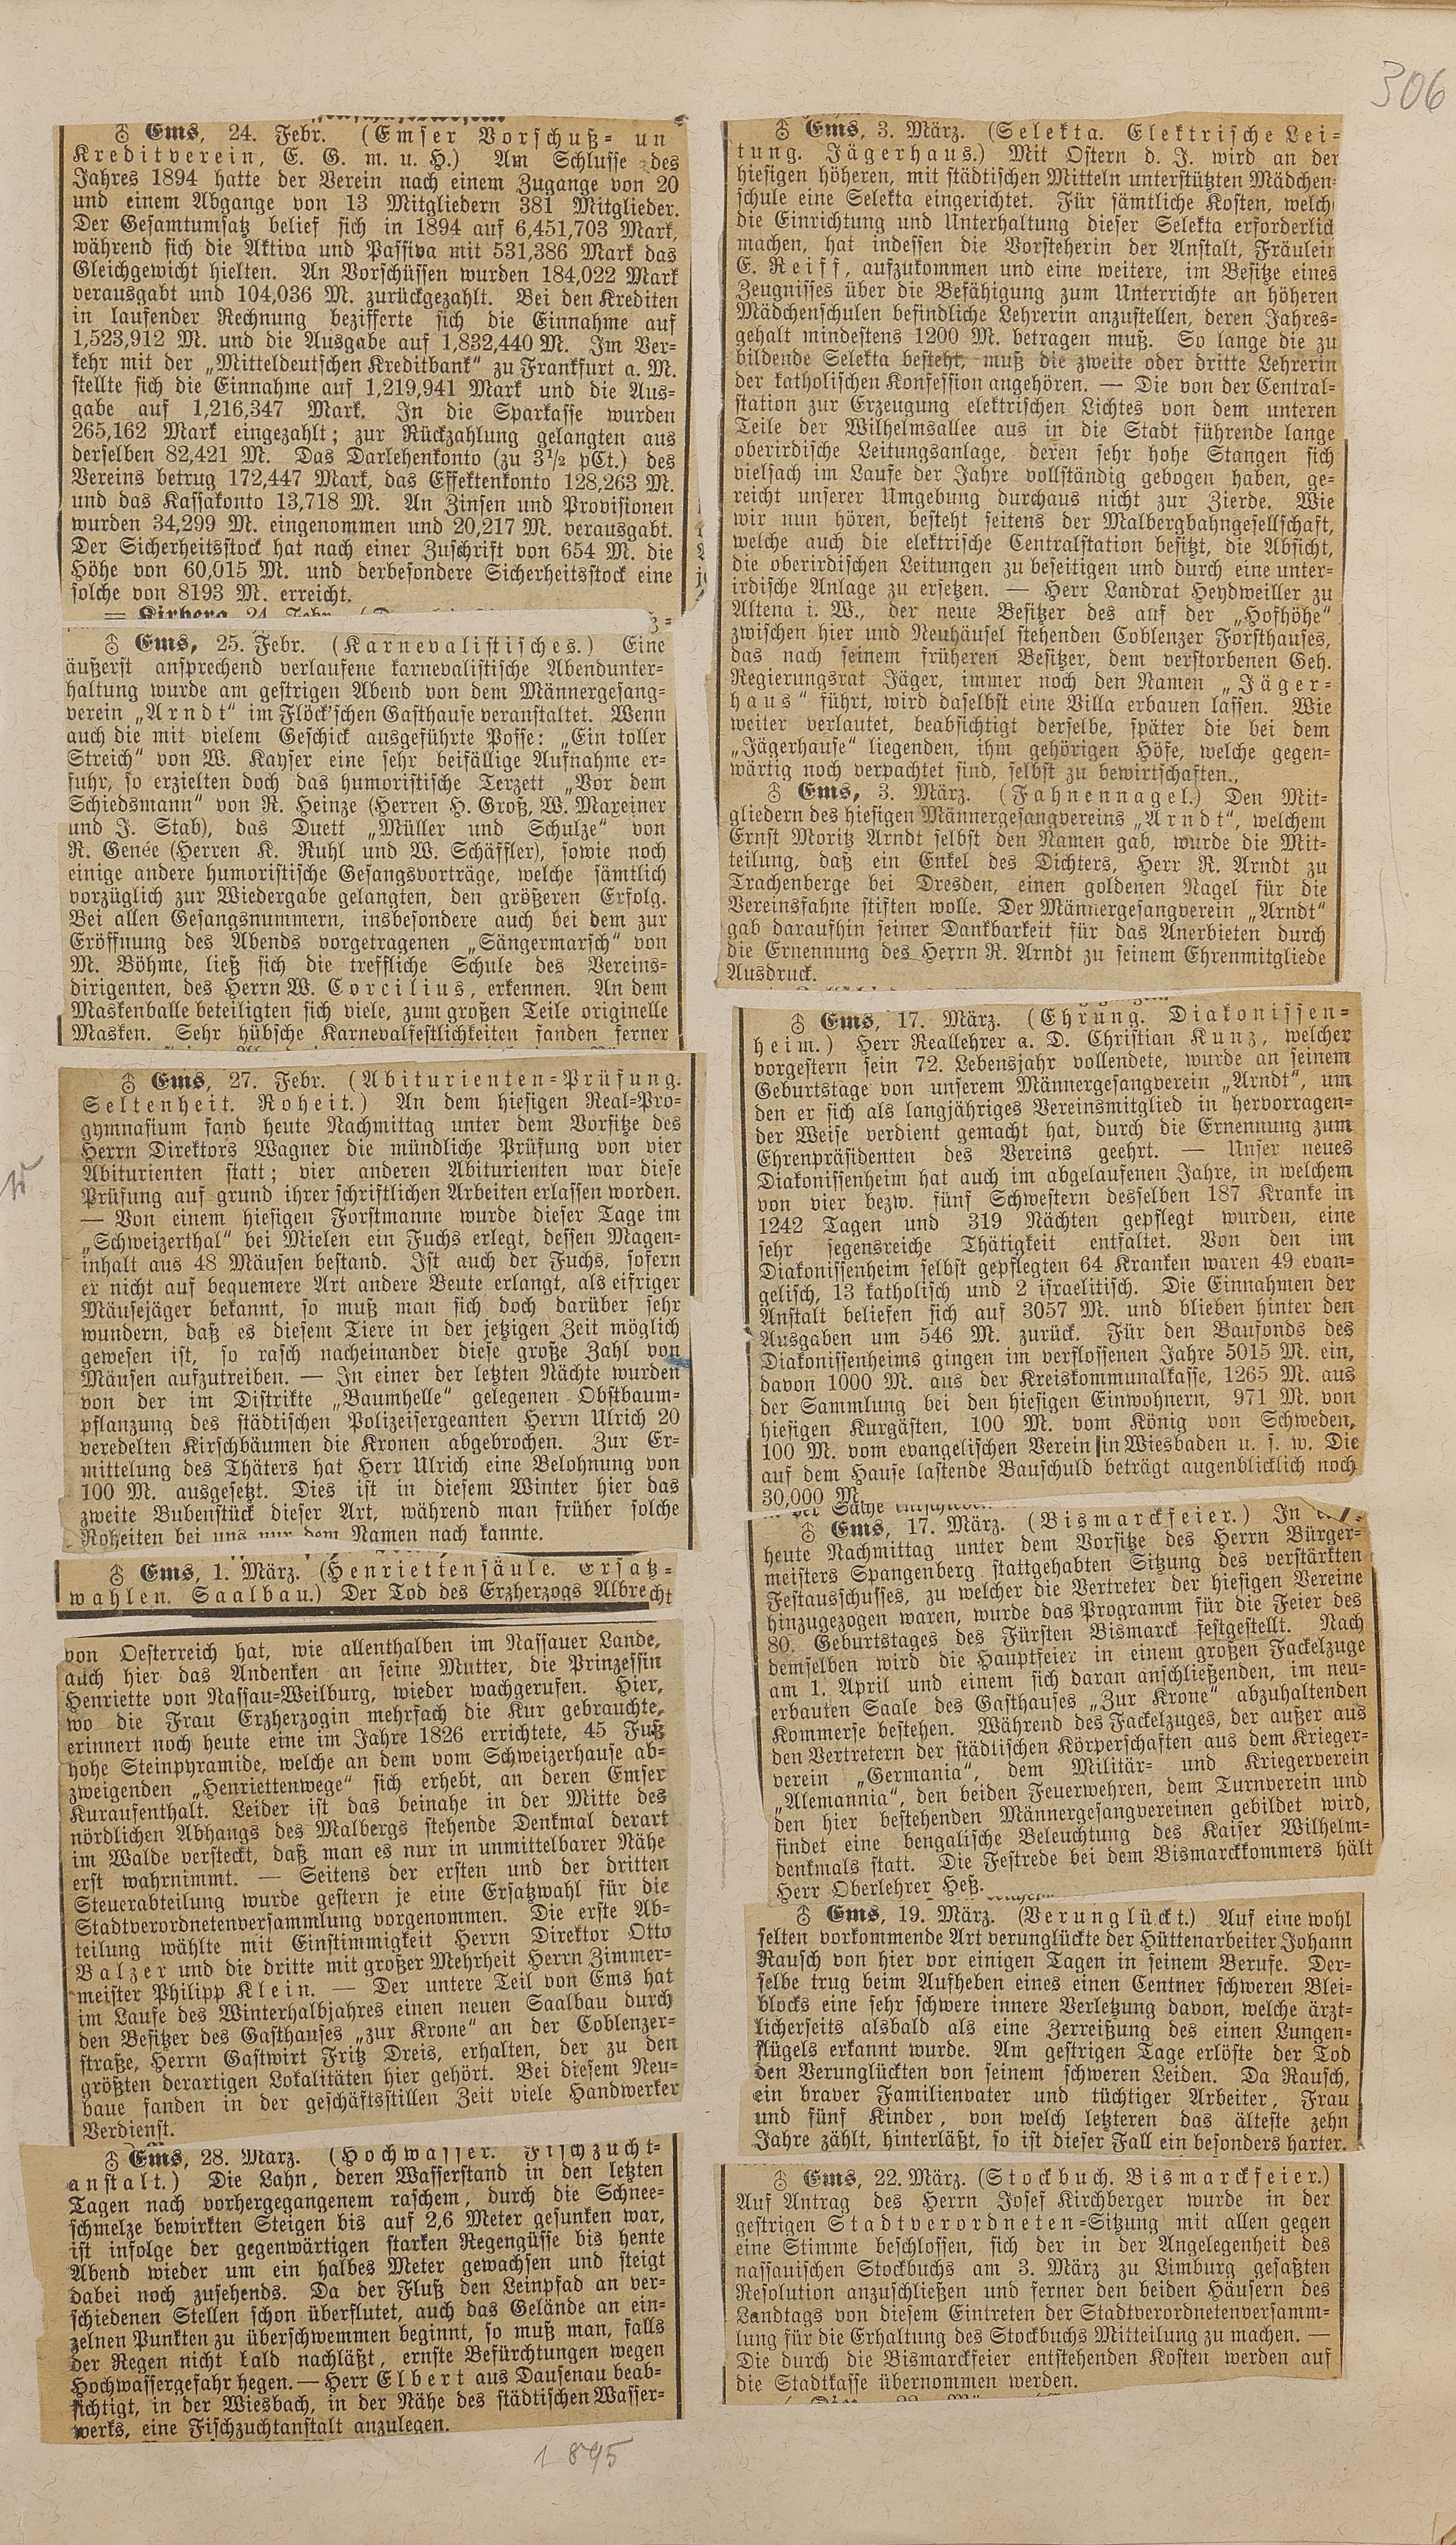 306
♁ Ems, 24. Febr. (Emser Vorschuß- un
Kreditverein, E. G. m. u. H.) Am Schlusse des
Jahres 1894 hatte der Verein nach einem Zugange von 20
und einem Abgange von 13 Mitgliedern 381 Mitglieder.
Der Gesamtumsatz belief sich in 1894 auf 6,451,703 Mark,
während sich die Aktiva und Passiva mit 531,386 Mark das
Gleichgewicht hielten. An Vorschüssen wurden 184,022 Mark
verausgabt und 104,036 M. zurückgezahlt. Bei den Krediten
in laufender Rechnung bezifferte sich die Einnahme auf
1,523,912 M. und die Ausgabe auf 1,832,440 M. Im Ver-
kehr mit der „Mitteldeutschen Kreditbank“ zu Frankfurt a. M.
stellte sich die Einnahme auf 1,219,941 Mark und die Aus-
gabe auf 1,216,347 Mark. In die Sparkasse wurden
265,162 Mark eingezahlt; zur Rückzahlung gelangten aus
derselben 82,421 M. Das Darlehenkonto (zu 3½ pCt.) des
Vereins betrug 172,447 Mark, das Effektenkonto 128,263 M.
und das Kassakonto 13,718 M. An Zinsen und Provisionen
wurden 34,299 M. eingenommen und 20,217 M. verausgabt.
Der Sicherheitsstock hat nach einer Zuschrift von 654 M. die
Höhe von 60,015 M. und derbesondere Sicherheitsstock eine
solche von 8193 M. erreicht.
— Kirberg, 24. Febr.
♁ Ems, 25. Febr. (Karnevalistisches.) Eine
äußerst ansprechend verlaufene karnevalistische Abendunter-
haltung wurde am gestrigen Abend von dem Männergesang-
verein „Arndt“ im Flöck'schen Gasthause veranstaltet. Wenn
auch die mit vielem Geschick ausgeführte Posse: „Ein toller
Streich“ von W. Kayser eine sehr beifällige Aufnahme er-
fuhr, so erzielten doch das humoristische Terzett „Vor dem
Schiedsmann“ von R. Heinze (Herren H. Groß, W. Maxeiner
und J. Stab), das Duett „Müller und Schulze“ von
R. Genée (Herren K. Ruhl und W. Schäffler), sowie noch
einige andere humoristische Gesangsvorträge, welche sämtlich
vorzüglich zur Wiedergabe gelangten, den größeren Erfolg.
Bei allen Gesangsnummern, insbesondere auch bei dem zur
Eröffnung des Abends vorgetragenen „Sängermarsch“ von
M. Böhme, ließ sich die treffliche Schule des Vereins-
dirigenten, des Herrn W. Corcilius, erkennen. An dem
Maskenballe beteiligten sich viele, zum großen Teile originelle
Masken. Sehr hübsche Karnevalfestlichkeiten fanden ferner
♁ Ems, 27. Febr. (Abiturienten-Prüfung.
Seltenheit. Roheit.) An dem hiesigen Real-Pro-
gymnasium fand heute Nachmittag unter dem Vorsitze des
Herrn Direktors Wagner die mündliche Prüfung von vier
Abiturienten statt; vier anderen Abiturienten war diese
Prüfung auf grund ihrer schriftlichen Arbeiten erlassen worden.
— Von einem hiesigen Forstmanne wurde dieser Tage im
„Schweizerthal“ bei Mielen ein Fuchs erlegt, dessen Magen-
inhalt aus 48 Mäusen bestand. Ist auch der Fuchs, sofern
er nicht auf bequemere Art andere Beute erlangt, als eifriger
Mäusejäger bekannt, so muß man sich doch darüber sehr
wundern, daß es diesem Tiere in der jetzigen Zeit möglich
gewesen ist, so rasch nacheinander diese große Zahl von
Mäusen aufzutreiben. — In einer der letzten Nächte wurden
von der im Distrikte „Baumhelle“ gelegenen Obstbaum-
pflanzung des städtischen Polizeisergeanten Herrn Ulrich 20
veredelten Kirschbäumen die Kronen abgebrochen. Zur Er-
mittelung des Thäters hat Herr Ulrich eine Belohnung von
100 M. ausgesetzt. Dies ist in diesem Winter hier das
zweite Bubenstück dieser Art, während man früher solche
Roheiten bei uns nur dem Namen nach kannte.
♁ Ems, 1. März. (Henriettensäule. Ersatz-
wahlen. Saalbau.) Der Tod des Erzherzogs Albrecht
von Oesterreich hat, wie allenthalben im Nassauer Lande,
auch hier das Andenken an seine Mutter, die Prinzessin
Henriette von Nassau-Weilburg, wieder wachgerufen. Hier,
wo die Frau Erzherzogin mehrfach die Kur gebrauchte,
erinnert noch heute eine im Jahre 1826 errichtete, 45 Fuß
hohe Steinpyramide, welche an dem vom Schweizerhause ab-
zweigenden „Henriettenwege“ sich erhebt, an deren Emser
Kuraufenthalt. Leider ist das beinahe in der Mitte des
nördlichen Abhangs des Malbergs stehende Denkmal derart
im Walde versteckt, daß man es nur in unmittelbarer Nähe
erst wahrnimmt. — Seitens der ersten und der dritten
Steuerabteilung wurde gestern je eine Ersatzwahl für die
Stadtverordnetenversammlung vorgenommen. Die erste Ab-
teilung wählte mit Einstimmigkeit Herrn Direktor Otto
Balzer und die dritte mit großer Mehrheit Herrn Zimmer-
meister Philipp Klein. — Der untere Teil von Ems hat
im Laufe des Winterhalbjahres einen neuen Saalbau durch
den Besitzer des Gasthauses „zur Krone“ an der Coblenzer-
straße, Herrn Gastwirt Fritz Dreis, erhalten, der zu den
größten derartigen Lokalitäten hier gehört. Bei diesem Neu-
baue fanden in der geschäftsstillen Zeit viele Handwerker
Verdienst.
♁ Ems, 28. März. (Hochwasser. Fischzucht-
anstalt.) Die Lahn, deren Wasserstand in den letzten
Tagen nach vorhergegangenem raschem, durch die Schnee-
schmelze bewirkten Steigen bis auf 2,6 Meter gesunken war,
ist infolge der gegenwärtigen starken Regengüsse bis heute
Abend wieder um ein halbes Meter gewachsen und steigt
dabei noch zusehends. Da der Fluß den Leinpfad an ver-
schiedenen Stellen schon überflutet, auch das Gelände an ein-
zelnen Punkten zu überschwemmen beginnt, so muß man, falls
der Regen nicht bald nachläßt, ernste Befürchtungen wegen
Hochwassergefahr hegen. — Herr Elbert aus Dausenau beab-
sichtigt, in der Wiesbach, in der Nähe des städtischen Wasser-
werks, eine Fischzuchtanstalt anzulegen.
1895
♁ Ems, 3. März. (Selekta. Elektrische Lei-
tung. Jägerhaus.) Mit Ostern d. J. wird an der
hiesigen höheren, mit städtischen Mitteln unterstützten Mädchen-
schule eine Selekta eingerichtet. Für sämtliche Kosten, welch
die Einrichtung und Unterhaltung dieser Selekta erforderlich
machen, hat indessen die Vorsteherin der Anstalt, Fräulein
E. Reiff, aufzukommen und eine weitere, im Besitze eines
Zeugnisses über die Befähigung zum Unterrichte an höheren
Mädchenschulen befindliche Lehrerin anzustellen, deren Jahres-
gehalt mindestens 1200 M. betragen muß. So lange die zu
bildende Selekta besteht, muß die zweite oder dritte Lehrerin
der katholischen Konfession angehören. — Die von der Central-
station zur Erzeugung elektrischen Lichtes von dem unteren
Teile der Wilhelmsallee aus in die Stadt führende lange
oberirdische Leitungsanlage, deren sehr hohe Stangen sich
vielfach im Laufe der Jahre vollständig gebogen haben, ge-
reicht unserer Umgebung durchaus nicht zur Zierde. Wie
wir nun hören, besteht seitens der Malbergbahngesellschaft,
welche auch die elektrische Centralstation besitzt, die Absicht,
die oberirdischen Leitungen zu beseitigen und durch eine unter-
irdische Anlage zu ersetzen. — Herr Landrat Heydweiller zu
Altena i. W., der neue Besitzer des auf der „Hofhöhe“
zwischen hier und Neuhäusel stehenden Coblenzer Forsthauses,
das nach seinem früheren Besitzer, dem verstorbenen Geh.
Regierungsrat Jäger, immer noch den Namen „Jäger-
haus“ führt, wird daselbst eine Villa erbauen lassen. Wie
weiter verlautet, beabsichtigt derselbe, später die bei dem
„Jägerhause“ liegenden, ihm gehörigen Höfe, welche gegen-
wärtig noch verpachtet sind, selbst zu bewirtschaften.
♁ Ems, 3. März. (Fahnennagel.) Den Mit-
gliedern des hiesigen Männergesangvereins „Arndt“, welchem
Ernst Moritz Arndt selbst den Namen gab, wurde die Mit-
teilung, daß ein Enkel des Dichters, Herr R. Arndt zu
Trachenberge bei Dresden, einen goldenen Nagel für die
Vereinsfahne stiften wolle. Der Männergesangverein „Arndt“
gab daraufhin seiner Dankbarkeit für das Anerbieten durch
die Ernennung des Herrn R. Arndt zu seinem Ehrenmitgliede
Ausdruck.
♁ Ems, 17. März. (Ehrung. Diakonissen-
heim.) Herr Reallehrer a. D. Christian Kunz, welcher
vorgestern sein 72. Lebensjahr vollendete, wurde an seinem
Geburtstage von unserem Männergesangverein „Arndt“, um
den er sich als langjähriges Vereinsmitglied in hervorragen-
der Weise verdient gemacht hat, durch die Ernennung zum
Ehrenpräsidenten des Vereins geehrt. — Unser neues
Diakonissenheim hat auch im abgelaufenen Jahre, in welchem
von vier bezw. fünf Schwestern desselben 187 Kranke in
1242 Tagen und 319 Nächten gepflegt wurden, eine
sehr segensreiche Thätigkeit entfaltet. Von den im
Diakonissenheim selbst gepflegten 64 Kranken waren 49 evan-
gelisch, 13 katholisch und 2 israelitisch. Die Einnahmen der
Anstalt beliefen sich auf 3057 M. und blieben hinter den
Ausgaben um 546 M. zurück. Für den Baufonds des
Diakonissenheims gingen im verflossenen Jahre 5015 M. ein,
davon 1000 M. aus der Kreiskommunalkasse, 1265 M. aus
der Sammlung bei den hiesigen Einwohnern, 971 M. von
hiesigen Kurgästen, 100 M. vom König von Schweden,
100 M. vom evangelischen Verein in Wiesbaden u. s. w. Die
auf dem Hause lastende Bauschuld beträgt augenblicklich noch
30,000 M.
♁ Ems, 17. März. (Bismarckfeier.) In
heute Nachmittag unter dem Vorsitze des Herrn Bürger-
meisters Spangenberg stattgehabten Sitzung des verstärkten
Festausschusses, zu welcher die Vertreter der hiesigen Vereine
hinzugezogen waren, wurde das Programm für die Feier des
80. Geburtstages des Fürsten Bismarck festgestellt. Nach
demselben wird die Hauptfeier in einem großen Fackelzuge
am 1. April und einem sich daran anschließenden, im neu-
erbauten Saale des Gasthauses „Zur Krone“ abzuhaltenden
Kommerse bestehen. Während des Fackelzuges, der außer aus
den Vertretern der städtischen Körperschaften aus dem Krieger-
verein „Germania“, dem Militär- und Kriegerverein
„Alemannia“, den beiden Feuerwehren, dem Turnverein und
den hier bestehenden Männergesangvereinen gebildet wird,
findet eine bengalische Beleuchtung des Kaiser Wilhelm-
denkmals statt. Die Festrede bei dem Bismarckkommers hält
Herr Oberlehrer Heß.
♁ Ems, 19. März. (Verunglückt.) Auf eine wohl
selten vorkommende Art verunglückte der Hüttenarbeiter Johann
Rausch von hier vor einigen Tagen in seinem Berufe. Der-
selbe trug beim Aufheben eines einen Centner schweren Blei-
blocks eine sehr schwere innere Verletzung davon, welche ärzt-
licherseits alsbald als eine Zerreißung des einen Lungen-
flügels erkannt wurde. Am gestrigen Tage erlöste der Tod
den Verunglückten von seinem schweren Leiden. Da Rausch,
ein braver Familienvater und tüchtiger Arbeiter, Frau
und fünf Kinder, von welch letzteren das älteste zehn
Jahre zählt, hinterläßt, so ist dieser Fall ein besonders harter.
♁ Ems, 22. März. (Stockbuch. Bismarckfeier.)
Auf Antrag des Herrn Josef Kirchberger wurde in der
gestrigen Stadtverordneten-Sitzung mit allen gegen
eine Stimme beschlossen, sich der in der Angelegenheit des
nassauischen Stockbuchs am 3. März zu Limburg gefaßten
Resolution anzuschließen und ferner den beiden Häusern des
Landtags von diesem Eintreten der Stadtverordnetenversamm-
lung für die Erhaltung des Stockbuchs Mitteilung zu machen. —
Die durch die Bismarckfeier entstehenden Kosten werden auf
die Stadtkasse übernommen werden.